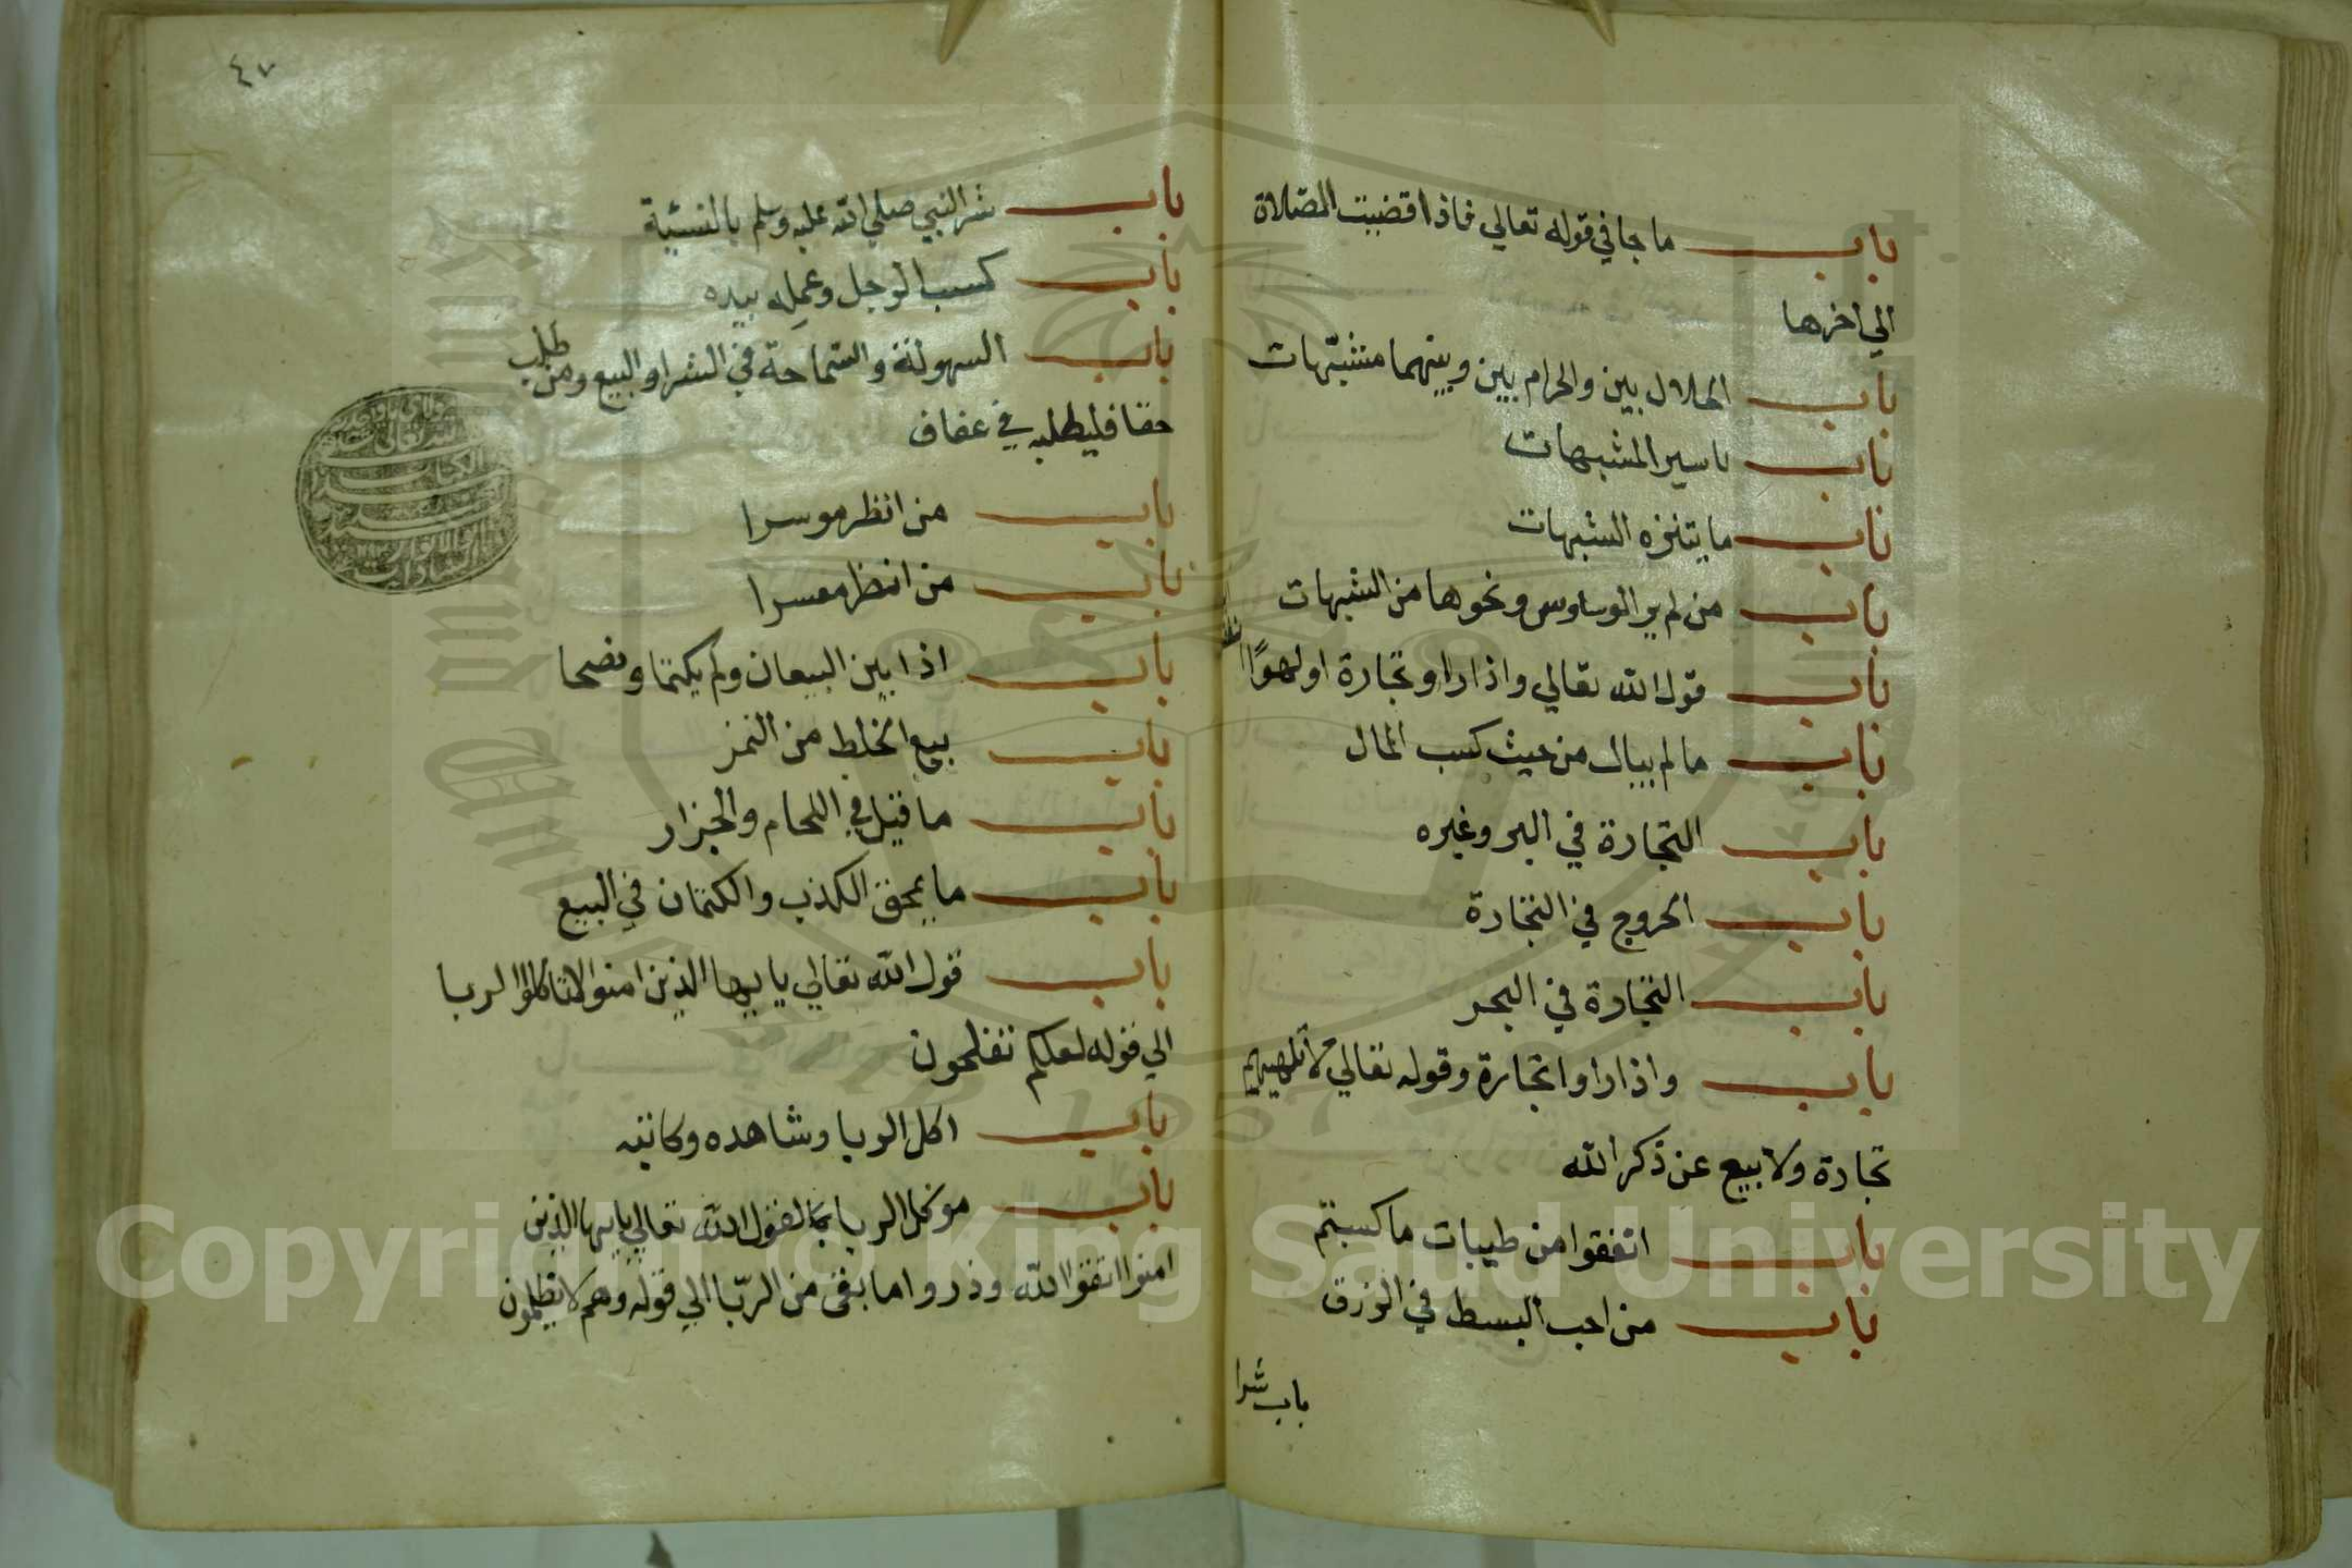 باب ما جا في قوله تعالي فاذا قضيت الصلاة
الي اخرها
باب الحلال بين والحرام بين وبينهما مشتبهات
باب تاسير المشبهات
باب ما يتنزه الشبهات
باب من لم ير الوساوس ونحوها من الشبهات
باب قول الله تعالي واذا راو تجارة او لهوًا
باب ما لم يبال من حيث كسب المال
باب التجارة في البر وغيره
باب الخروج في التجارة
باب التجارة في البحر
باب واذا راوا تجارة وقوله تعالي لا تلهيهم
تجارة ولا بيع عن ذكر الله
باب انفقوا من طيبات ما كسبتم
باب من احب البسط في الرزق
باب شرا
٤٧
باب شر النبي صلي الله عليه وسلم بالنسئية
باب كسب الرجل وعمله بيده
باب السهولة والسماحة في الشرا والبيع ومن طلب
حقا فليطلبه في عفاف
باب من انظر موسرا
باب من انظر معسرا
باب اذا بين البيعان ولم يكتما ونصحا
باب بيع الخلط من التمر
باب ما قيل في اللحام والجزار
باب ما يمحق الكذب والكتمان في البيع
باب قول الله تعالي يا ايها الذين امنوا لا تاكلوا الربا
الي قوله لعلكم تفلحون
باب اكل الربا وشاهده وكاتبه
باب موكل الربا لقول الله تعالي يا ايها الذين
امنوا اتقوا الله وذروا ما بقي من الربّا الي قوله وهم لا يظلمون
Copyright © King Saud University
1957